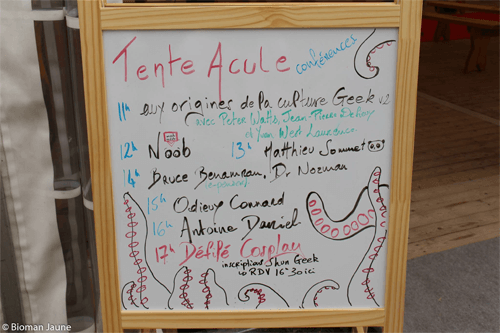 Tente Acule
conférences
11h aux origines de la culture Geek v2
avec Peter Watts, Jean-Pierre Dehny
d'Yan Wert Laurence
12h Noob 13h Matthieu Sommet
14h Bruce Benamran, Dr Nozman
15h Odieux Connard
16h Antoine Daniel
17h Défilé Cosplay
inscription Shun Geek
RDV 16h30 ici
© Bioman Jaune